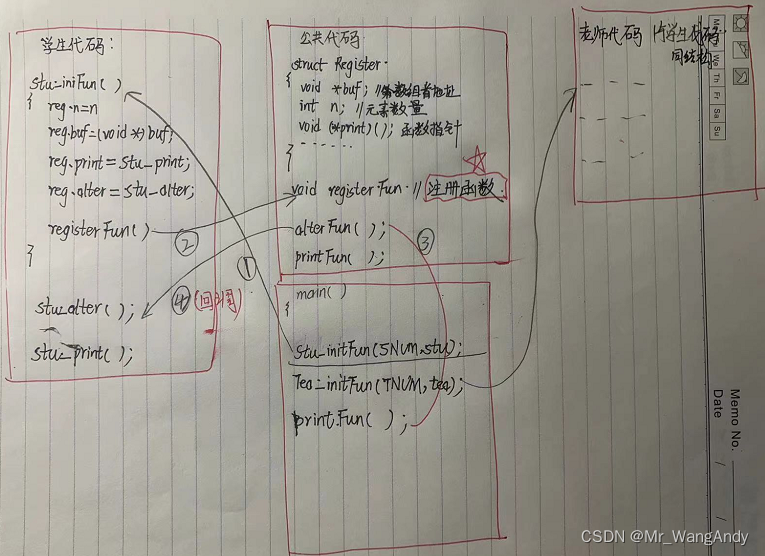 学生代码:
stu_iniFun( )
{
reg.n=n
reg.buf=(void *)buf;
reg.print=stu_print;
reg.alter=stu_alter;
registerFun( )
{
stu_alter( );
stu_print( );
①
②
③
④(回调)
公共代码
struct Register
{
void *buf; //
int n; //元素数量
void (*print)(); 函数指针
- - - - - -
}
void registerFun //注册函数.
alterFun( );
printFun( );
main( )
{
Stu_initFun(SNUM,stu);
Tea_initFun(TNUM,tea);
print.Fun( );
老师代码 学生代码
同结构
Th
Fr
Sa
Su
Memo No.
Date / /
CSDN @Mr_WangAndy